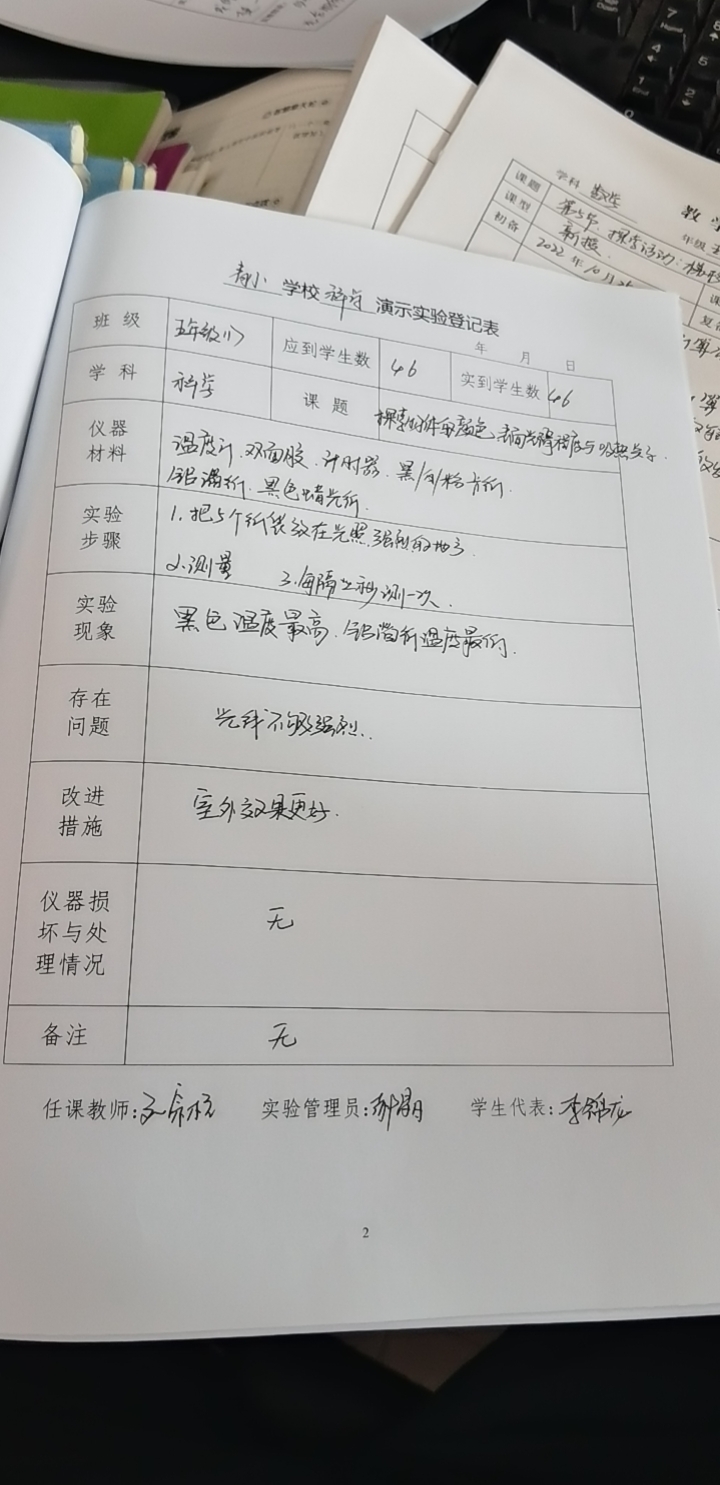 学科 数学
课题 第5节：探索活动：梯形
课型 新授
初备 2022年10月
年级
学校 演示实验登记表
年 月 日
班级 五年级(1) 应到学生数 46 实到学生数 46
学科 科学 课题 探索物体的颜色、表面光滑程度与吸热关系
仪器材料 温度计、双面胶、计时器、黑/白/粉方形
铝箔纸、黑色蜡光纸
实验步骤 1.把5个纸袋放在光照强烈的地方
2.测量 3.每隔2秒测一次.
实验现象 黑色温度最高、铝箔纸温度最低.
存在问题 光线不够强烈..
改进措施 室外效果更好.
仪器损坏与处理情况 无
备注 无
任课教师: 实验管理员: 学生代表:李锦龙
2